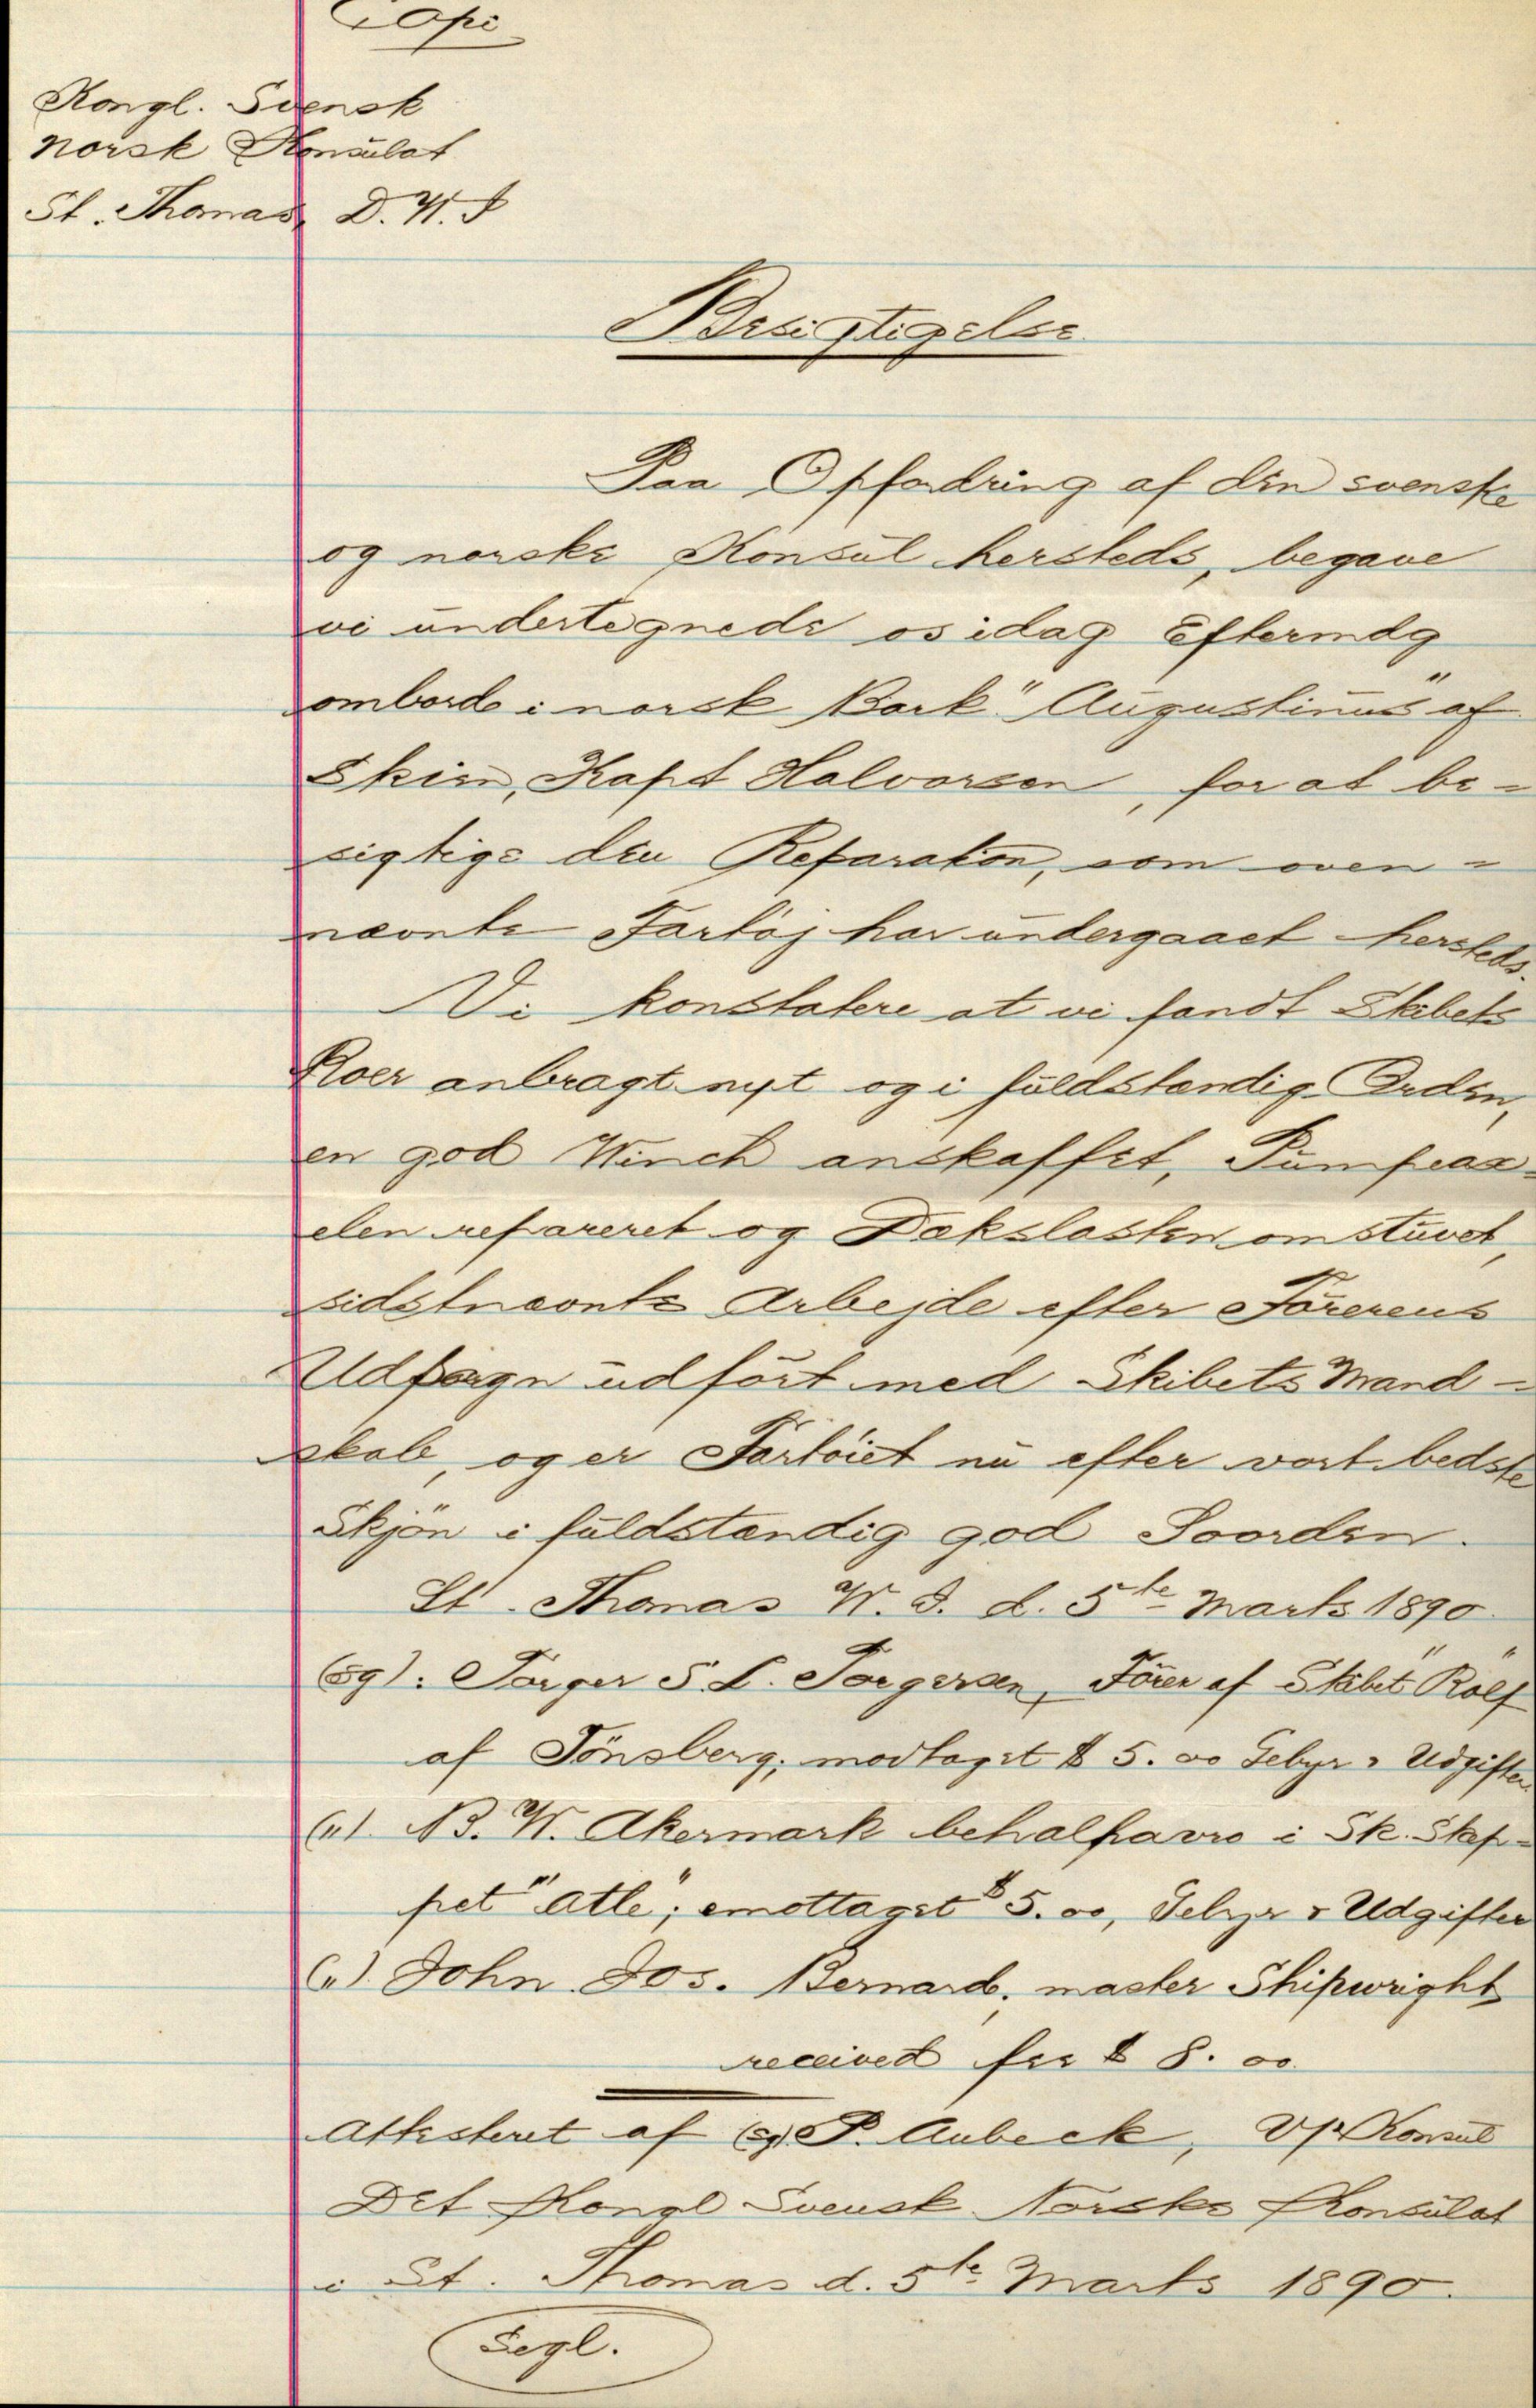 Copi
Kongl. Svensk
norsk Konsulat
St. Thomas, D. W. I
Besigtigelse
Paa Opfordring af den svenske
og norske Konsul hersteds, begave
vi undertegnede os idag Eftermdg
ombord i norsk Bark "Augustinus" af
Skien, Kapt Halvorsen, for at be-
sigtige den Reparation, som oven-
nævnte Fartöj har undergaaet hersteds.
Vi konstatere at vi fandt Skibets
Roer anbragt nyt og i fuldstændig Orden,
en god Winch anskaffet, Pumpeax-
elen repareret og Dækslasten omstuvet,
sidstnævnte Arbejde efter Förerens
Udsagn udfört med Skibets Mand-
skab, og er Fartöiet nu efter vort bedste
Skjön i fuldstændig god Soorden.
St. Thomas W. I. d. 5te Marts 1890.
(sg): Torger S. L. Torgersen, Förer af Skibet "Rolf"
af Tönsberg; modtaget $ 5.00 Gebyr & Udgifter
("). N. W. Akermark behalfavre i Sk. Skep-
pet "Atle"; emottaget $ 5.00, Gebyr & Udgifter
("). John Jos. Bernard, master Shipwright
received fee $ 8.00.
Attesteret af (sg) P. Aubeck, Vp Konsul
Det Kongl Svensk Norske Konsulat
i St. Thomas d. 5te Marts 1890.
Segl.